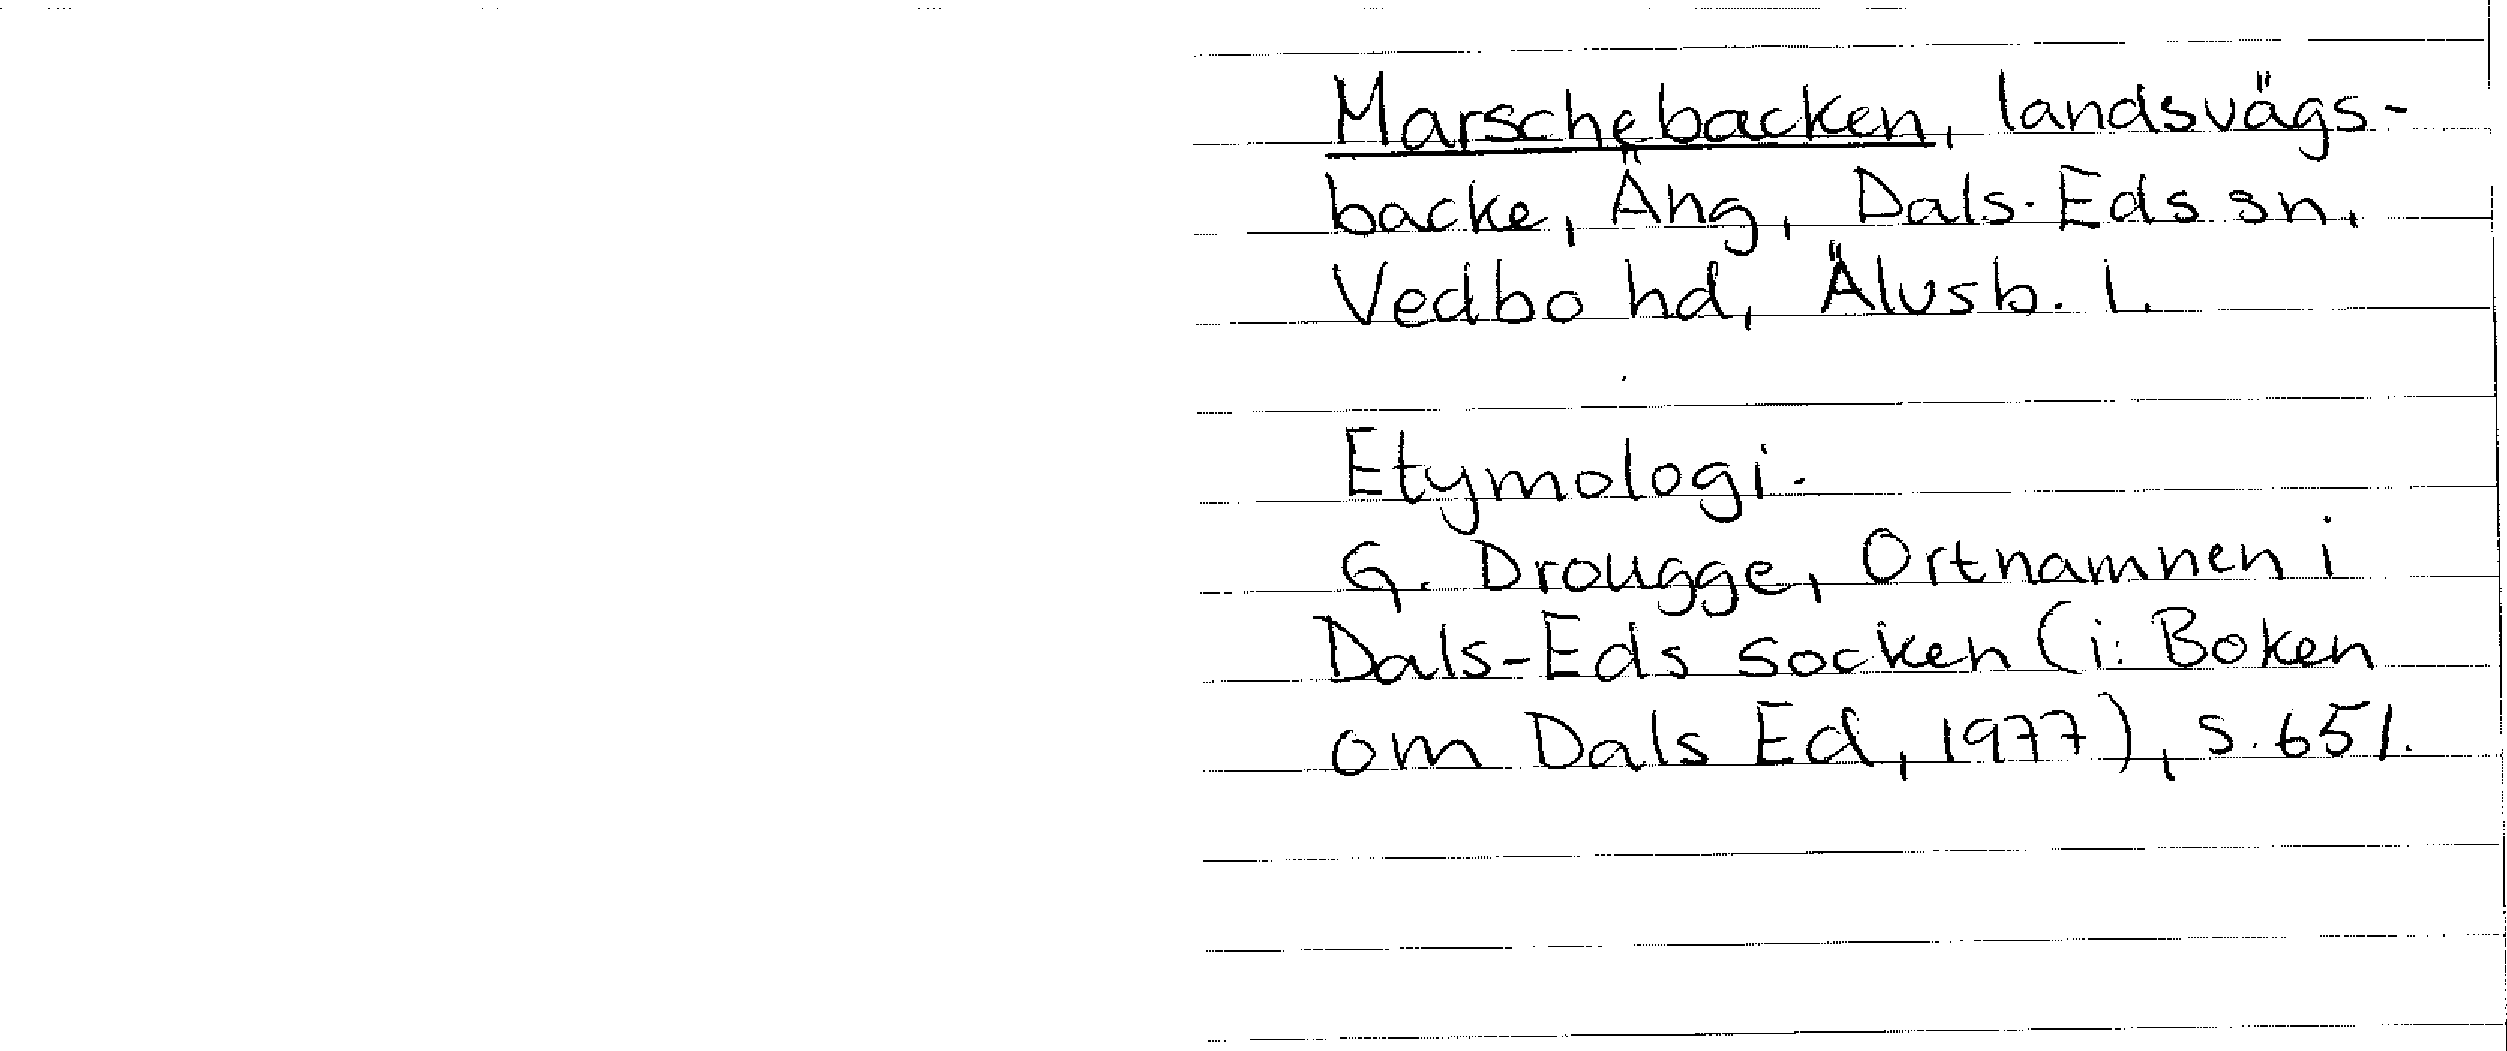 Marschebacken, landsvägs-
backe, Äng, Dals-Eds sn,
Vedbo hd, Älvsb. l.
Etymologi.
G. Drougge, Ortnamnen i
Dals-Eds socken (i: Boken
om Dals Ed, 1977), s. 651.